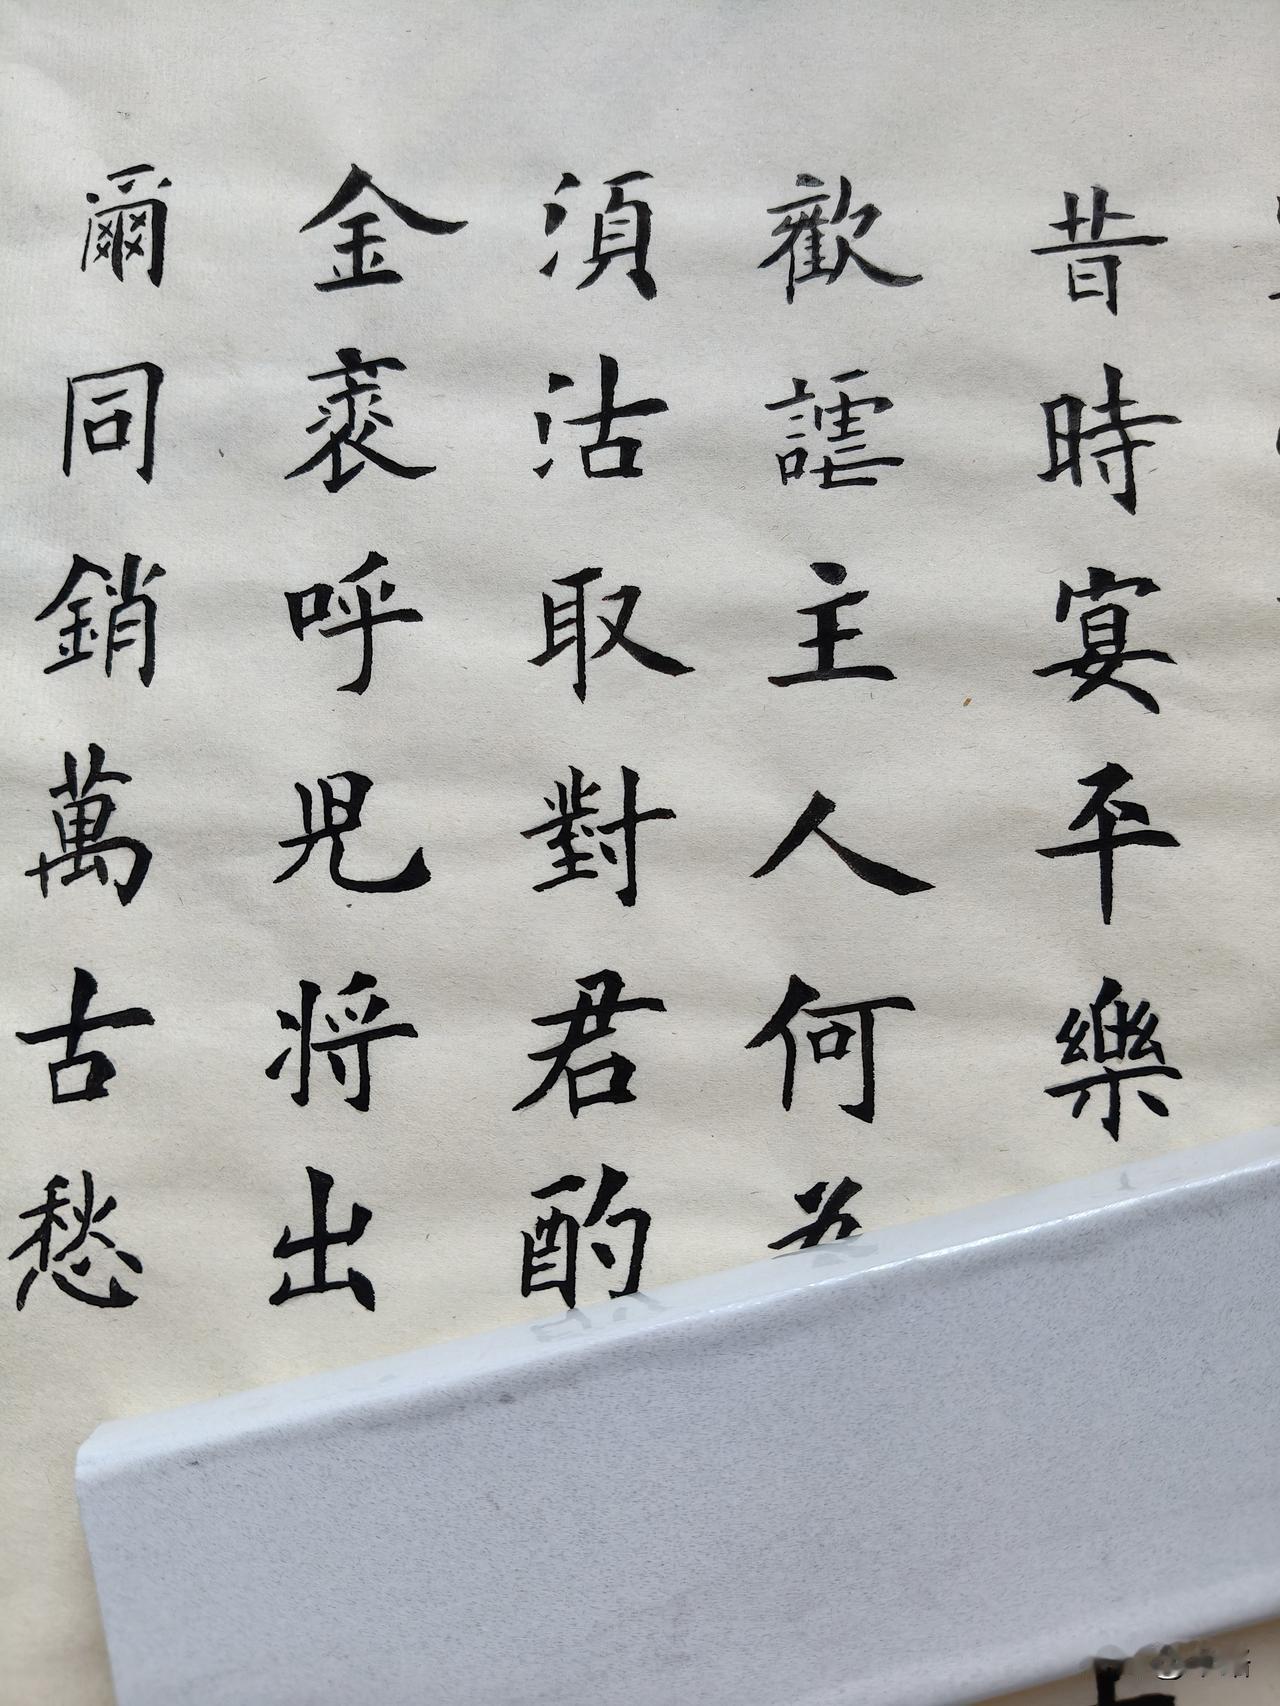 昔時宴平樂
歡謔主人何為
須沽取對君酌
金裘呼児将出
爾同銷萬古愁